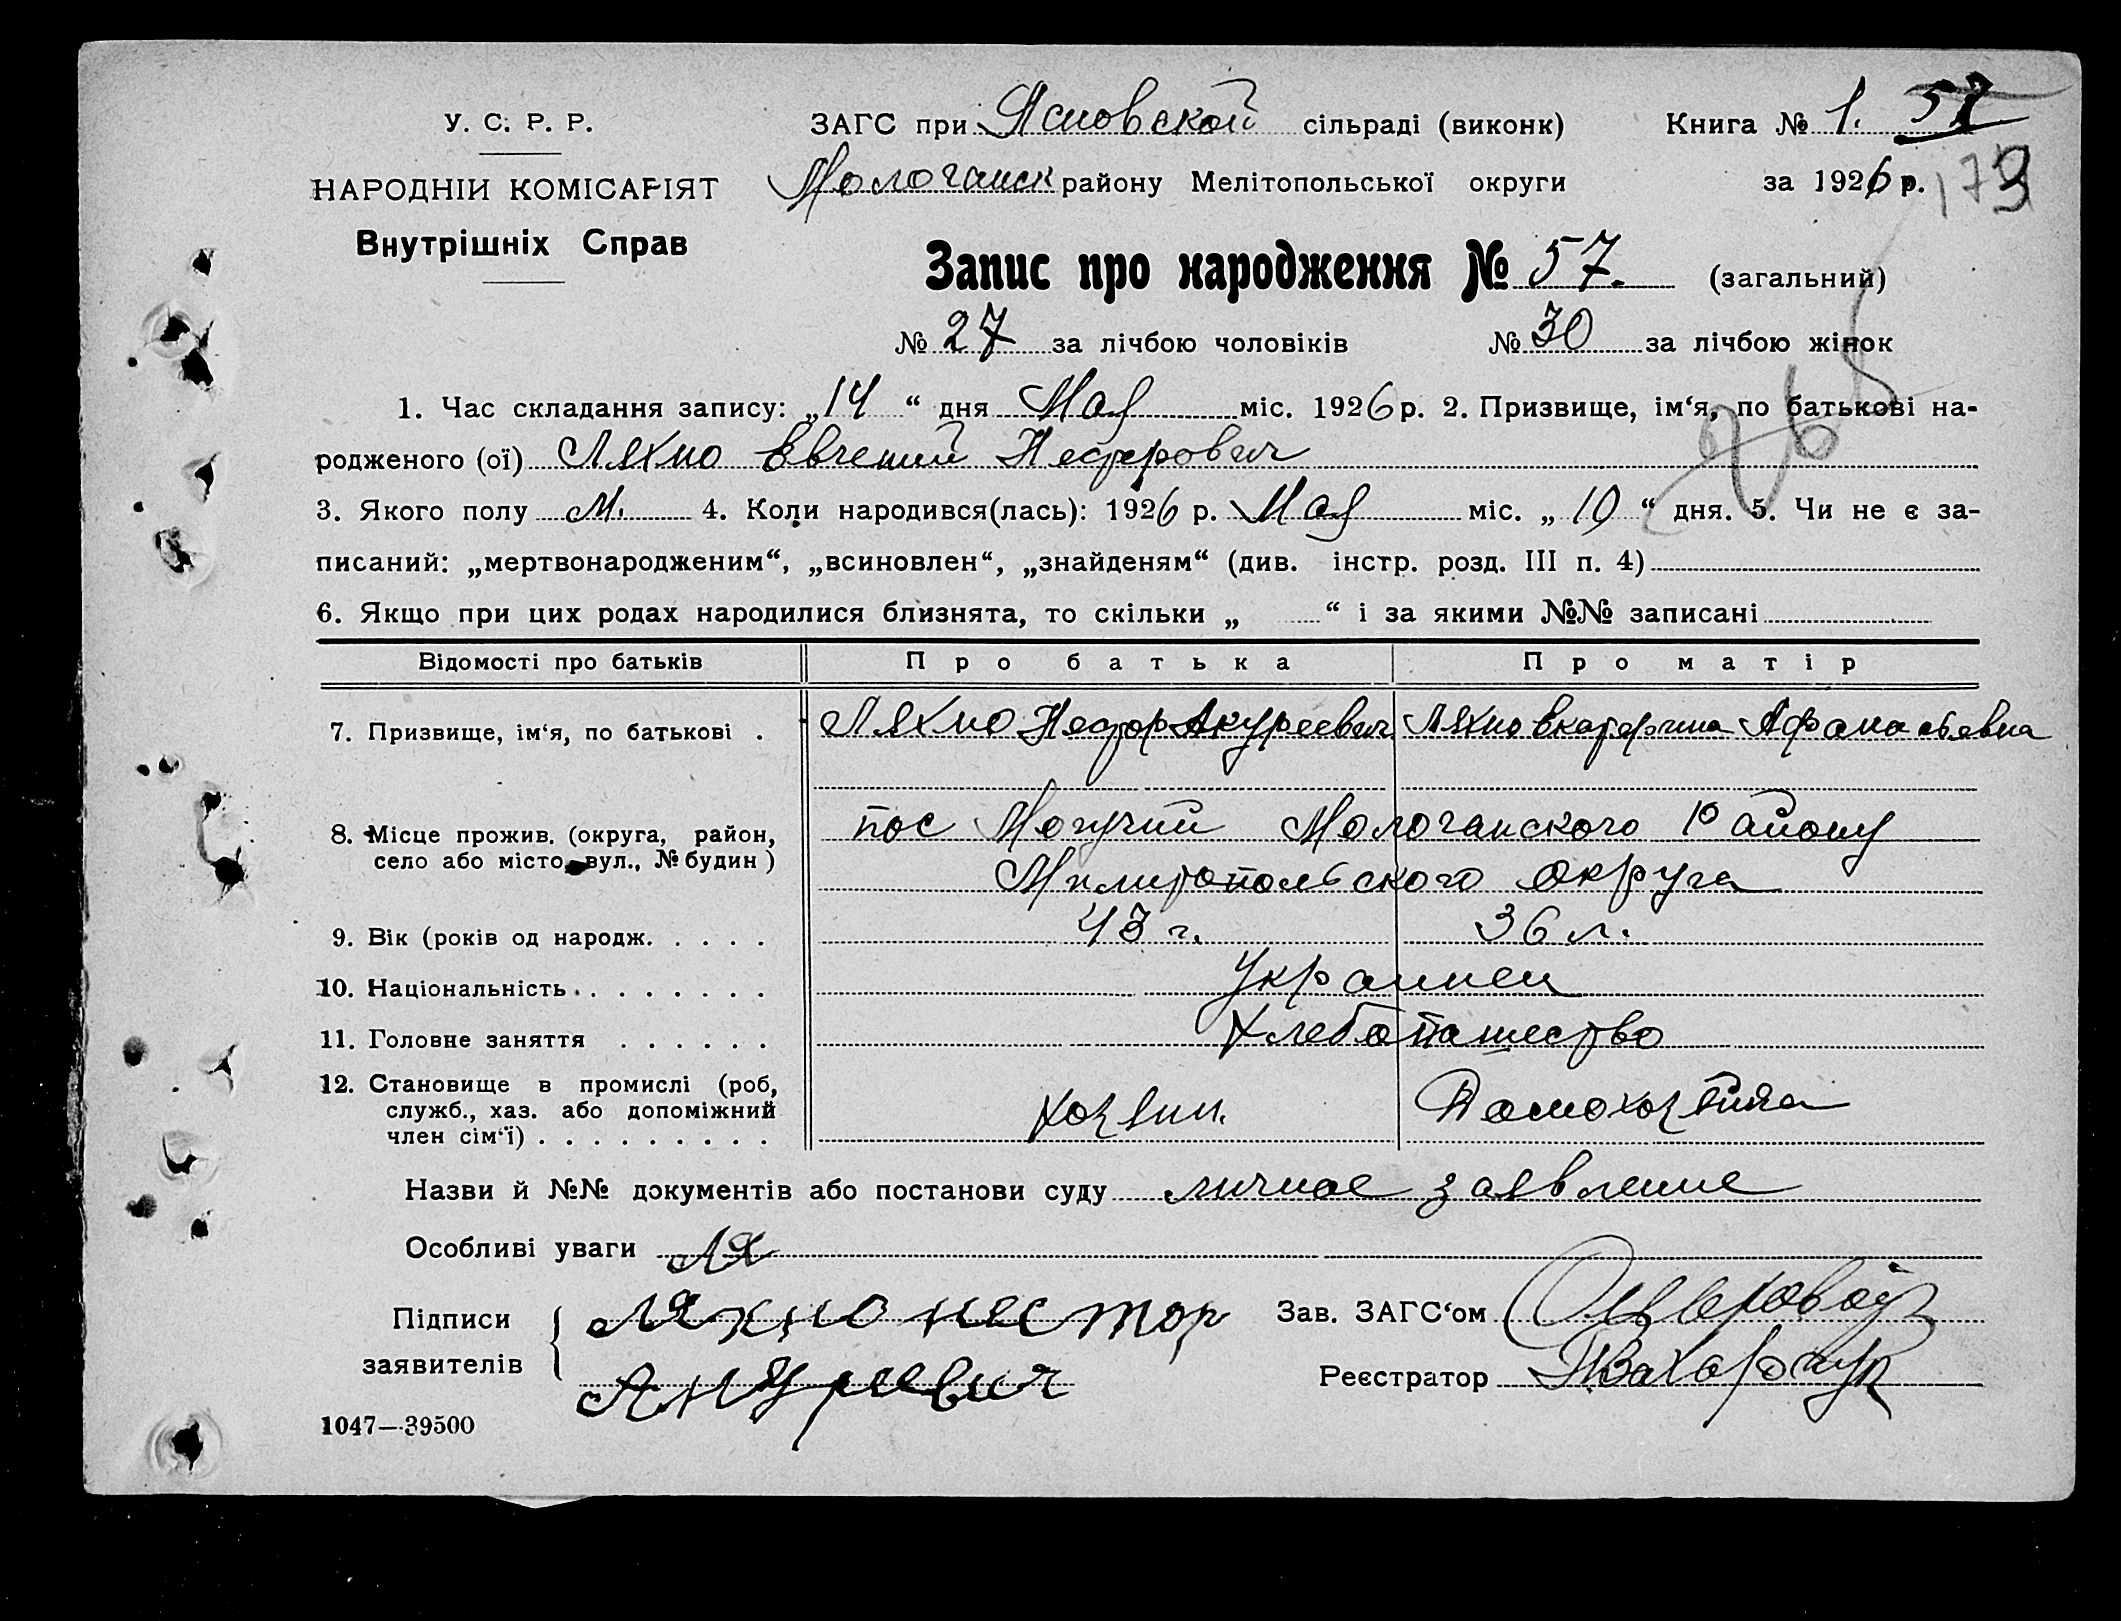 У. С. Р. Р.
НАРОДНІИ КОМІСАРІЯТ
Внутрішніх Справ
ЗАГС при Ясновской сільраді (виконк) Книга № 1. 57
Молочанск району Мелітопольської округи за 1926 р. 173
Запис про народження № 57. (загальний)
№ 27 за лічбою чоловіків № 30 за лічбою жінок
1. Час складання запису: „14“ дня Мая міс. 1926 р. 2. Призвище, ім‘я, по батькові на-
родженого (ої) Ляхно Евгений Несторович
3. Якого полу М. 4. Коли народився(лась): 1926 р. Мая міс. „10“ дня. 5. Чи не є за-
писаний: „мертвонародженим“, „всиновлен“, „знайденям“ (див. інстр. розд. III п. 4)
6. Якщо при цих родах народилися близнята, то скільки „ “ і за якими №№ записані
Відомості про батьків Про батька Про матір
7. Призвище, ім‘я, по батькові . Ляхно Нестор Ляхно Екатерина Афанасьевна
8. Місце прожив. (округа, район, пос Могучий Молочанского Району
село або місто, вул., № будин) Милитопольского округа
9. Вік (років од народж. . . . . 43 г. 36 л.
10. Національність . . . . . . . . Украинец
11. Головне заняття . . . . . . Хлебопашество
12. Становище в промислі (роб,
служб., хаз. або допоміжний хозяин. Домохозяйка
член сім‘ї) . . . . . . . . .
Назви й №№ документів або постанови суду личное заявление
Особливі уваги Лях
Підписи Ляхно нестор Зав. ЗАГС‘ом
заявителів Реєстратор
1047—39500